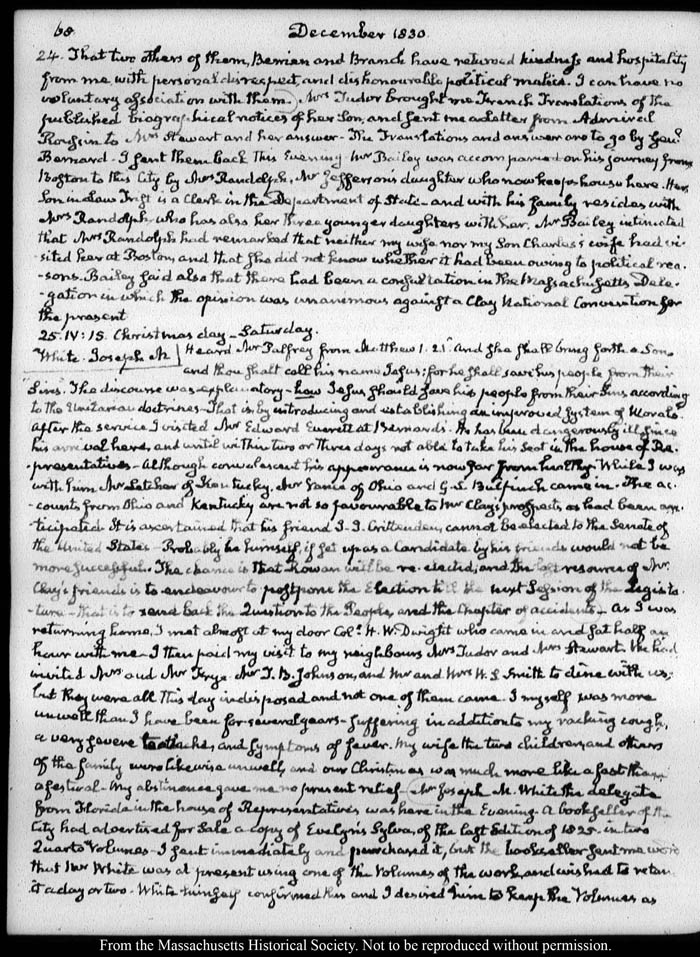 68 December 1830.
24. That two others of them, Berrien and Branch have returned kindness and hospitality
from me with personal disrespect, and dishonourable political malice. I can have no
voluntary association with them. Mrs Tudor brought me French Translations of the
published biographical notices of her Son, and sent me a Letter from Admiral
Roussin to Mrs Stewart and her answer - The Translations and answer are to go by Genl.
Bernard - I sent them back this Evening. Mr Bailey was accompanied on his journey from
Boston to this City by Mrs Randolph, Mr Jefferson's daughter who now keeps house here. Her
Son in Law Trist is a Clerk in the Department of State - and with his family resides with
Mrs Randolph who has also her three younger daughters with her. Mr Bailey intimated
that Mrs Randolph had remarked that neither my wife nor my Son Charles's wife had vi-
-sited her at Boston, and that she did not know whether it had been owing to political rea-
-sons. Bailey said also that there had been a consultation in the Massachusetts Dele-
-gation in which the opinion was unanimous against a Clay National Convention for
the present
25. IV:15. Christmas day - Saturday.
White. Joseph M Heard Mr Palfrey from Matthew 1. 21. And she shall bring forth a Son
and thou shalt call his name Jesus: for he shall save his people from their
Sins. The discourse was explanatory - how Jesus should save his people from their Sins according
to the Unitarian doctrines - That is, by introducing and establishing an improved System of Morals.
After the service I visited Mr Edward Everett at Bernards - He has been dangerously ill since
his arrival here, and until within two or three days not able to take his Seat in the house of Re-
-presentatives - Although convalescent his appearance is now far from healthy. While I was
with him Mr Letcher of Kentucky, Mr Vance of Ohio and G. S. Bulfinch came in. The ac-
-counts from Ohio and Kentucky are not so favourable to Mr Clay's prospects as had been an-
ticipated. It is ascertained that his friend J. J. Crittenden, cannot be elected to the Senate of
the United States - Probably he himself, if set up as a Candidate by his friends would not be
more successful. The chance is that Rowan will be re-elected, and the last resource of Mr
Clay's friends is to endeavour to postpone the Election till the next Session of the Legisla-
ture - that is to send back the Question to the People, and the Chapter of accidents. As I was
returning home, I met almost at my door Coll. H. W. Dwight who came in and sat half an
hour with me. I then paid my visit to my neighbours Mrs Tudor and Mrs Stewart. We had
invited Mrs and Mr Frye Mr T. B. Johnson, and Mr and Mrs W. S. Smith to dine with us;
but they were all this day indisposed and not one of them came. I myself was more
unwell than I have been for several years - suffering in addition to my racking cough,
a very severe toothache, and symptoms of fever. My wife the two children, and others
of the family were likewise unwell, and our Christmas was much more like a fast than
a festival - My abstinence gave me no present relief - Mr Joseph M. White the delegate
from Florida in the house of Representatives was here in the Evening. A bookseller of the
City had advertised for Sale a copy of Evelyn's Sylva, of the last Edition of 1825. in two
Quarto Volumes - I sent immediately and purchased it, but the bookseller sent me word
that Mr White was at present using one of the Volumes of the work, and wished to retain
it a day or two. White himself confirmed this and I desired him to keep the Volumes as
From the Massachusetts Historical Society. Not to be reproduced without permission.